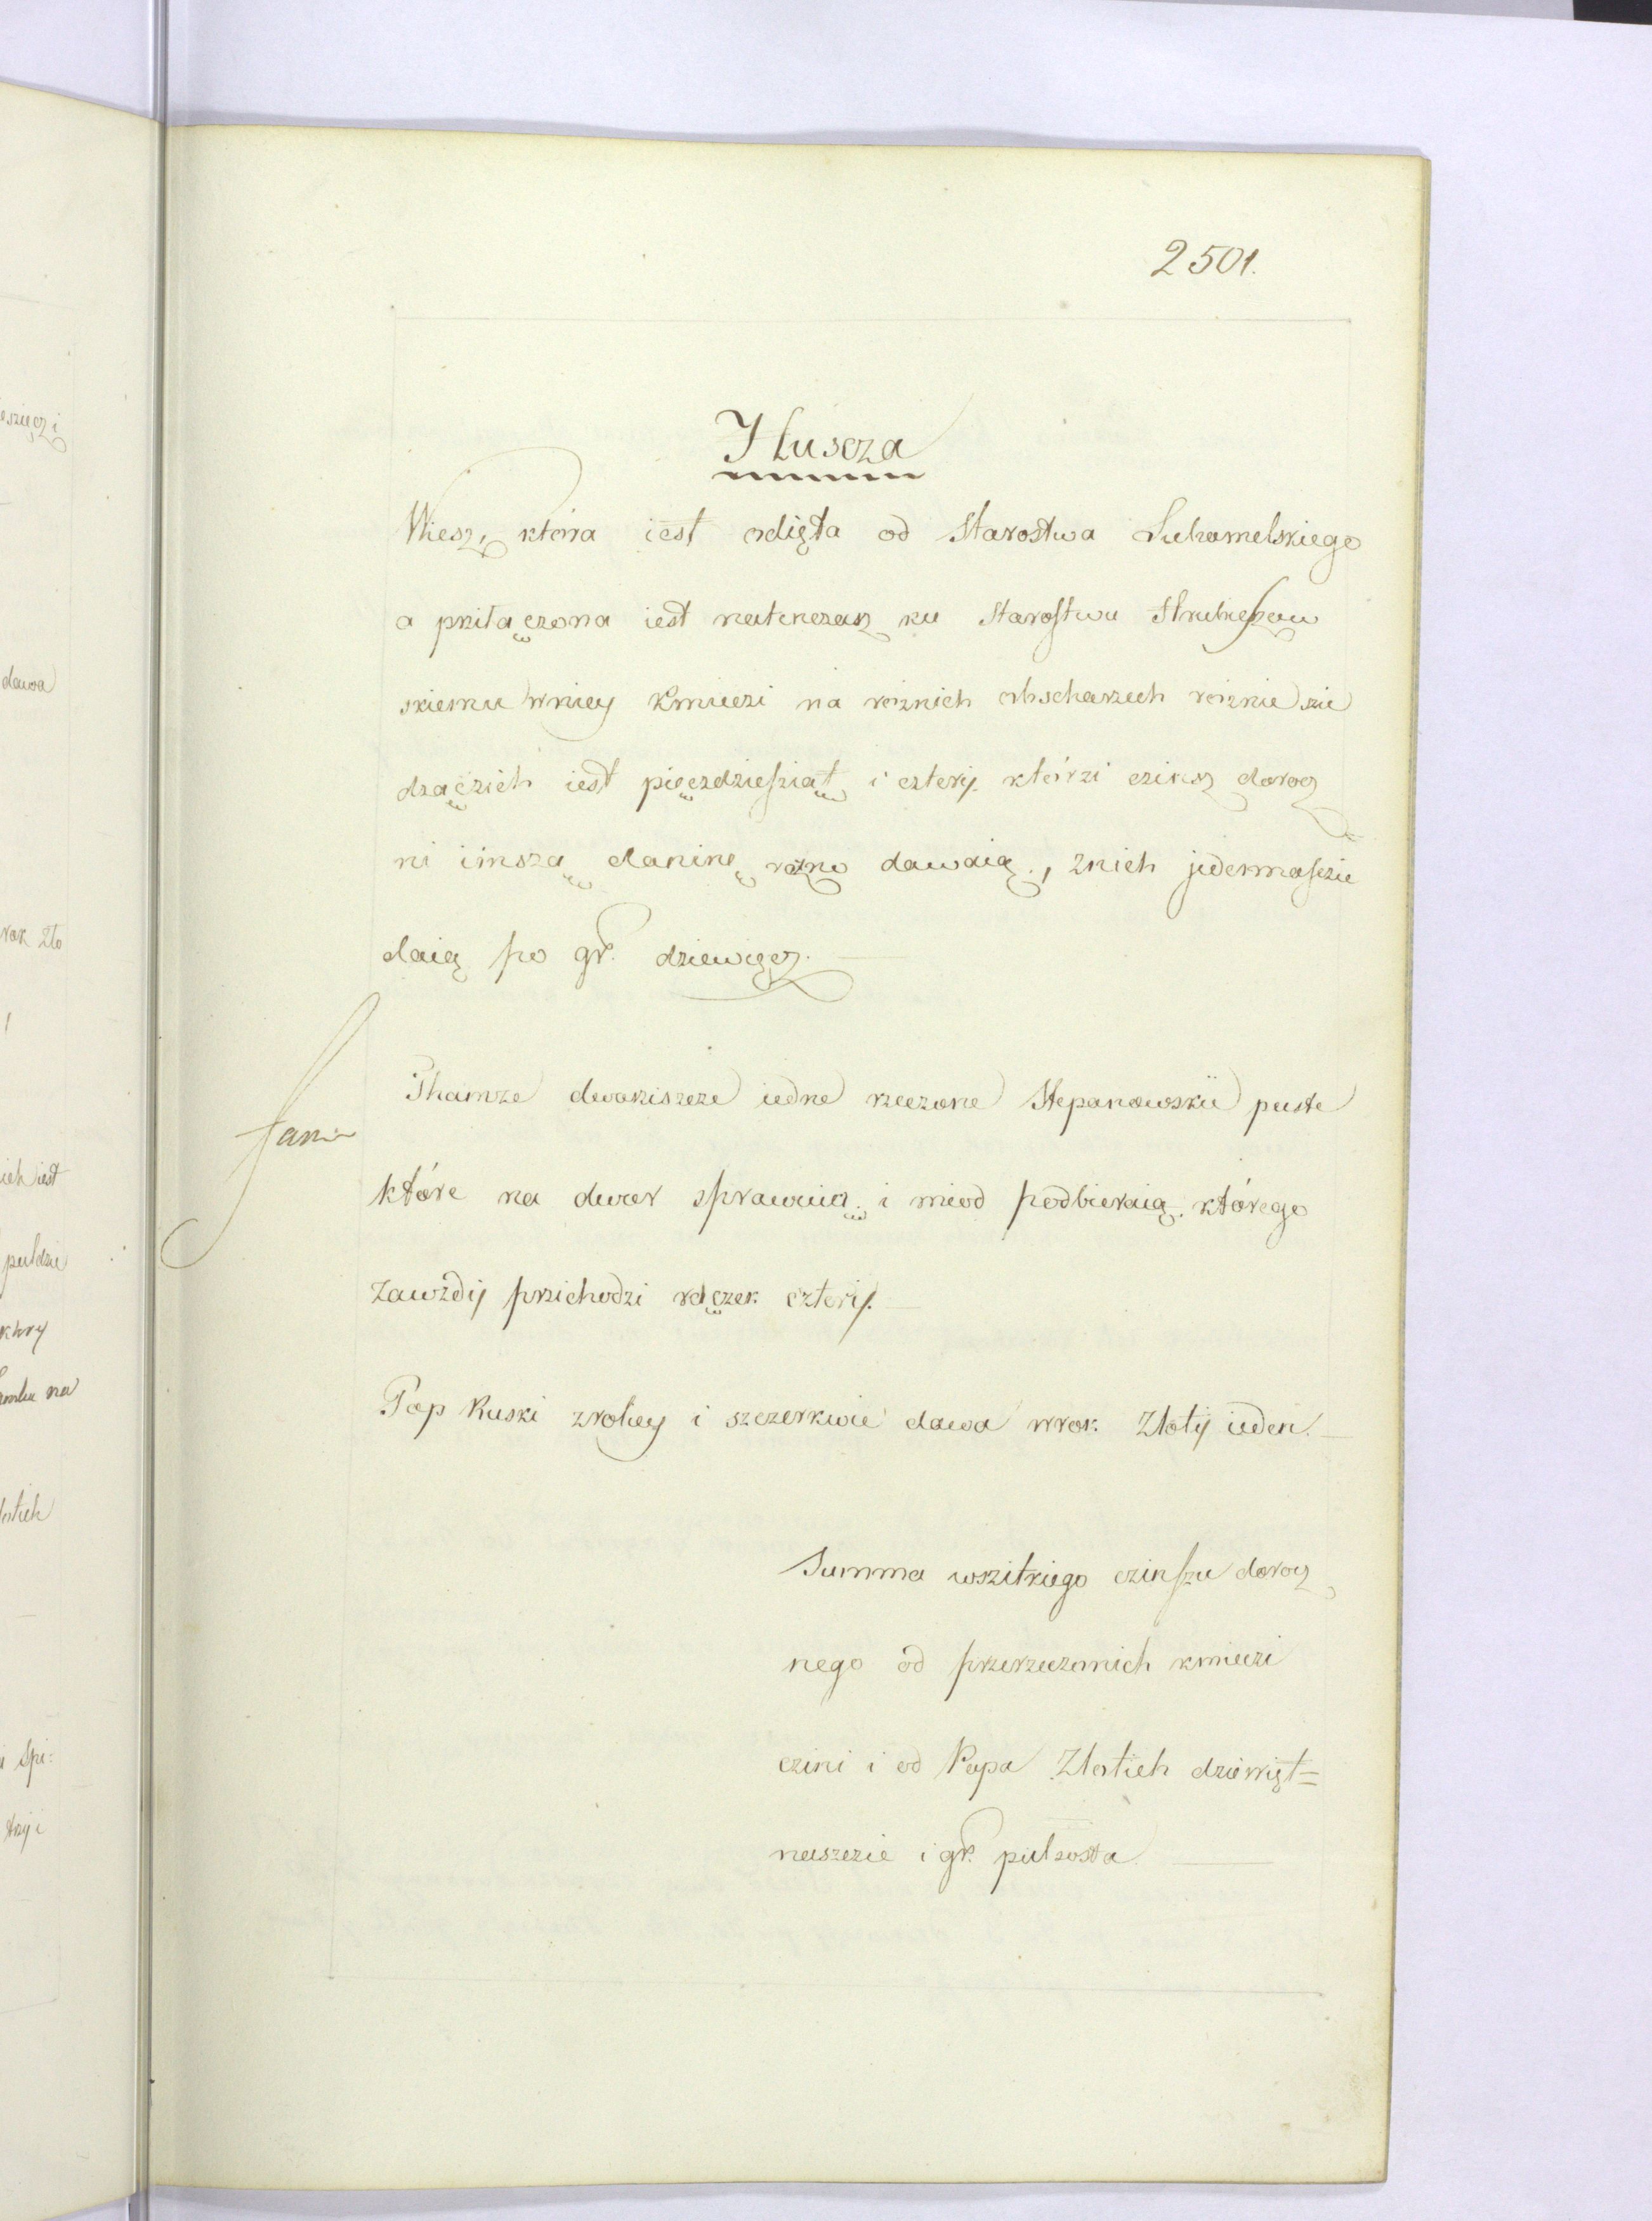 2501.
Hluscza
Wiesz, która iest odięta od Starostwa Luhomelskiego
a prziłączona iest natenczasz ku Starostwu Hrubieszow
skiemu wniey Kmieczi na roznich obscharzech roznie szie
dzączich iest pięczdziesziąt i cztery, którzi czinsz dorocz
ni inszą daninę rozno dawaią, znich jedennasczie
daią po gr. dziewięcz.
Thamze dworziszcze iedne rzeczone Stepanowskie puste
które na dwor sprawuią i miod podbieraią, którego
zawżdy przichodzi rączek czterÿ.
Pop Ruski zroley i szczerkwie dawa wrok Złotÿ ieden.
Summa wszitkiego czinszu docorz
nego od przerzeczonich kmieczi
czini i od Popa Złotich dziewięt=
nasczie i gr. pulszosta